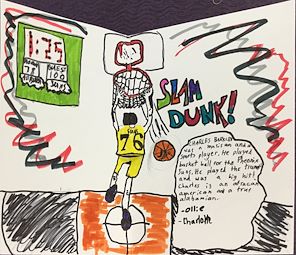 1:25
76
100
SLAM
DUNK!
SUNS
76
CHARLES BARKLEY
was a musician and a
sports player. He played
basket ball for the Phoenix
Suns. He played the trumpet
and was a big hit!
Charles is an african
american and a true
alabamian.
-ollie
-Charlotte